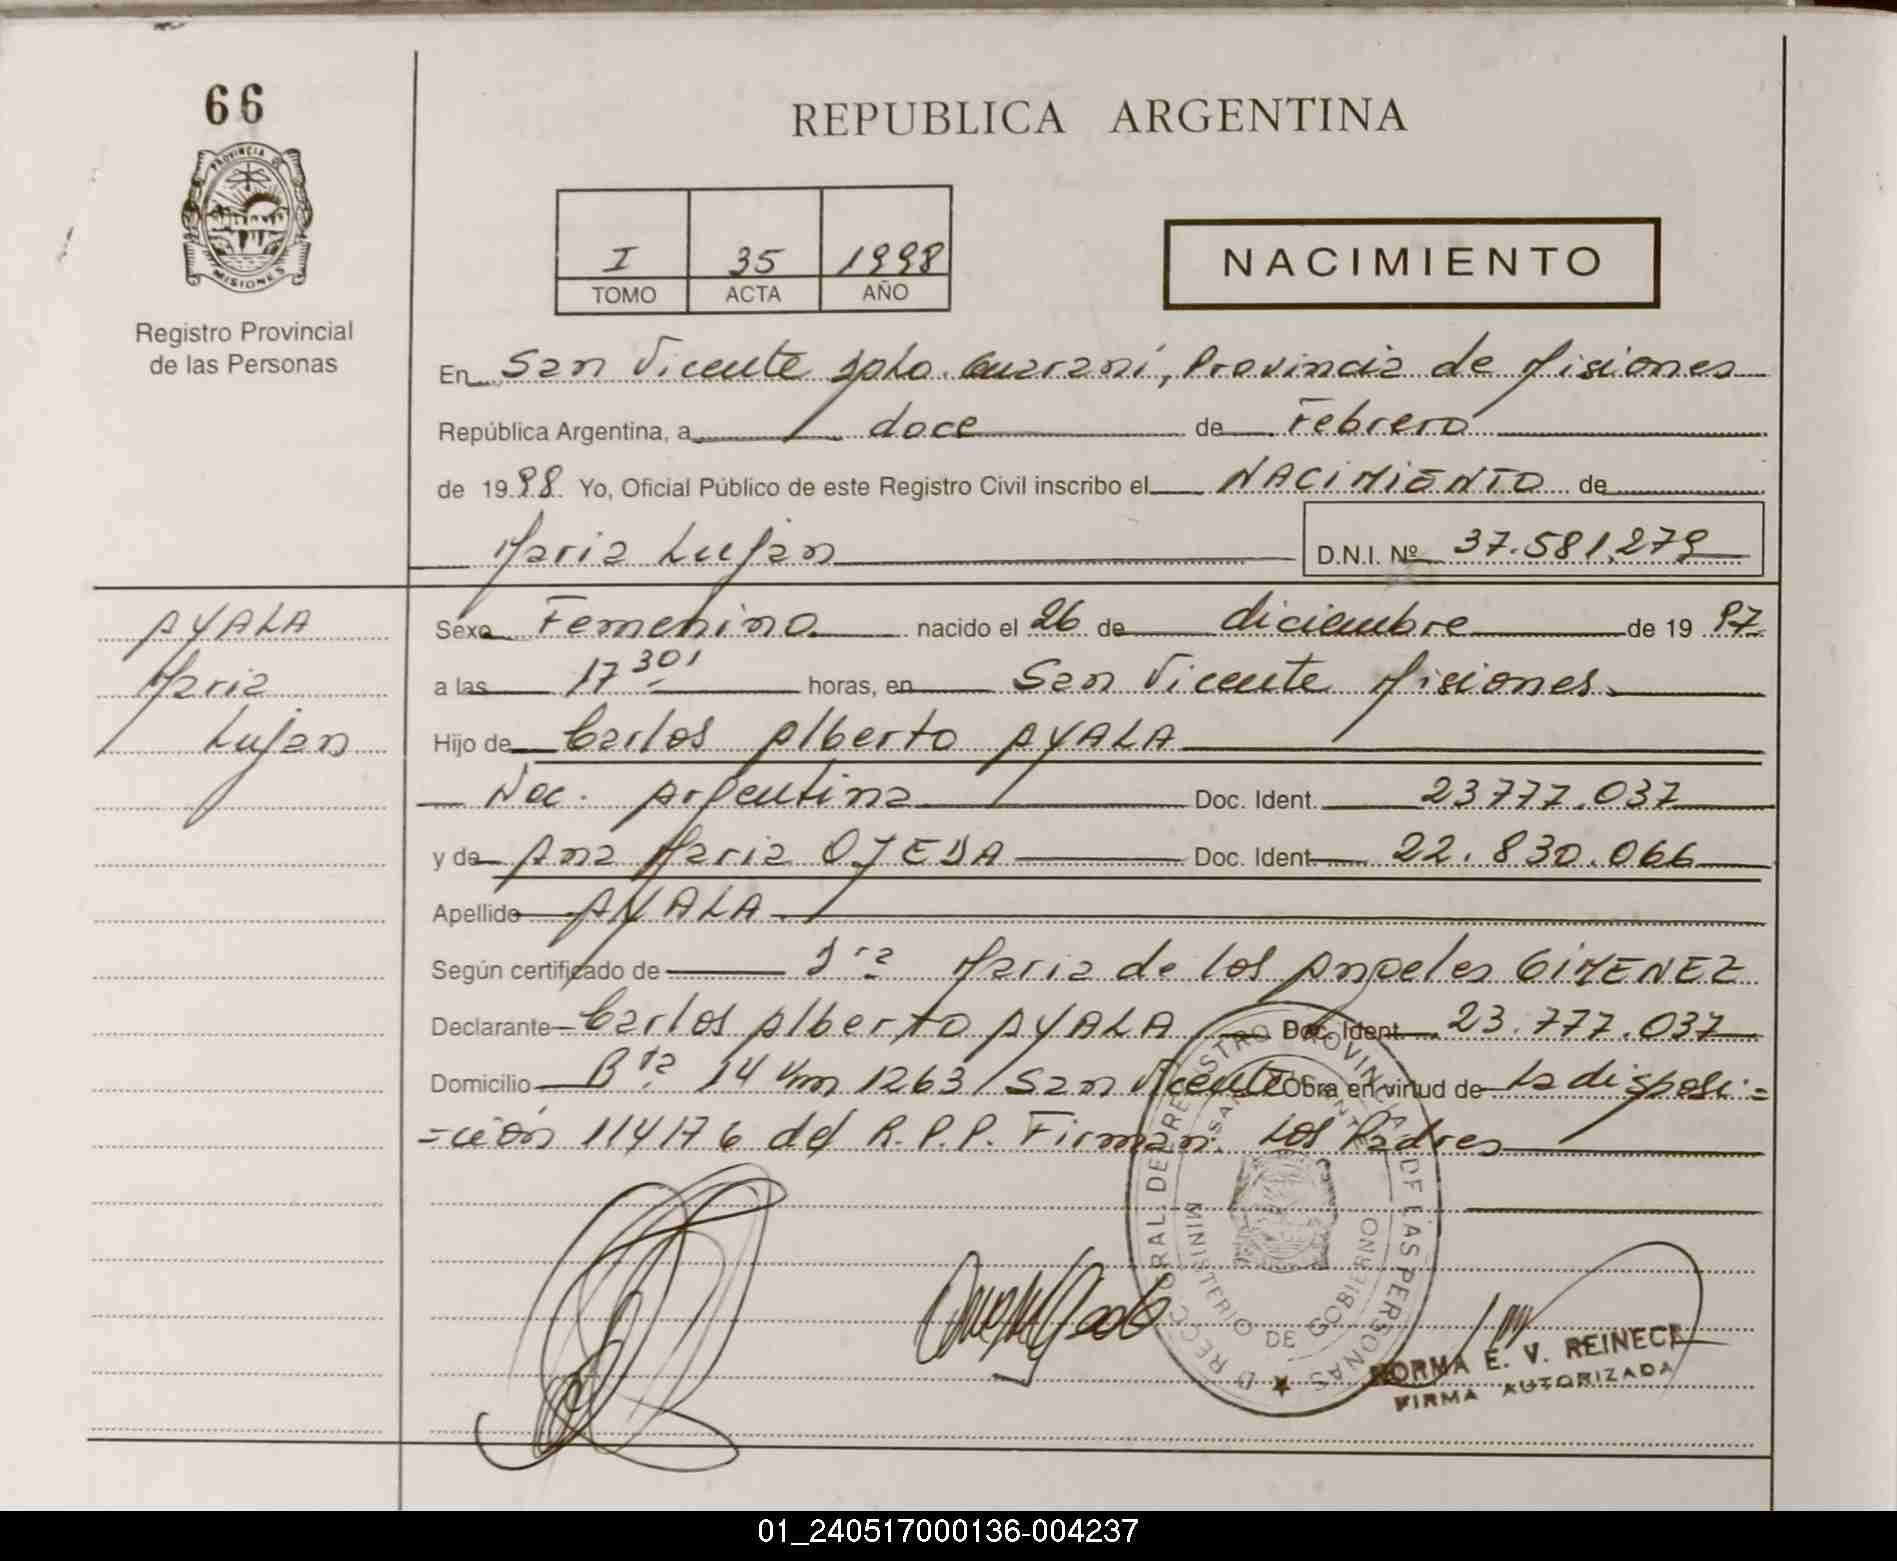 66
PROVINCIA DE
MISIONES
Registro Provincial
de las Personas
REPUBLICA ARGENTINA
I 35 1998
TOMO ACTA AÑO
NACIMIENTO
En San Vicente Dpto. Guaraní, Provincia de Misiones
República Argentina, a doce de Febrero
de 1998 Yo, Oficial Público de este Registro Civil inscribo el NACIMIENTO de
Maria Lujan D.N.I. Nº 37.581.279
AYALA
Maria
Lujan
Sexo Femenino nacido el 26 de diciembre de 1997
a las 17 30' horas, en San Vicente Misiones
Hijo de Carlos Alberto AYALA
Nac. Argentina Doc. Ident. 23777.037
y de Ana Maria OJEDA Doc. Ident 22.830.066
Apellido AYALA
Según certificado de Dra Maria de los Angeles GIMENEZ
Declarante Carlos Alberto AYALA Doc. Ident 23.777.037
Domicilio Bº 14 Km 1263 San Vicente Obra en virtud de la disposi=
=ción 114/76 del R.P.P. Firman: Los Padres
DIRECC GRAL. DEL REGISTRO PROVINCIAL DE LAS PERSONAS
SAN VICENTE
MINISTERIO DE GOBIERNO
NORMA E. V. REINECK
FIRMA AUTORIZADA
01_240517000136-004237